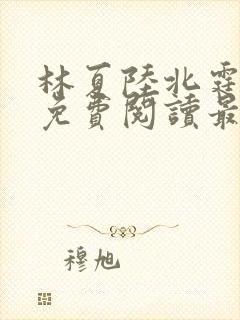 林夏陸北霆
免費閱讀最
穆旭